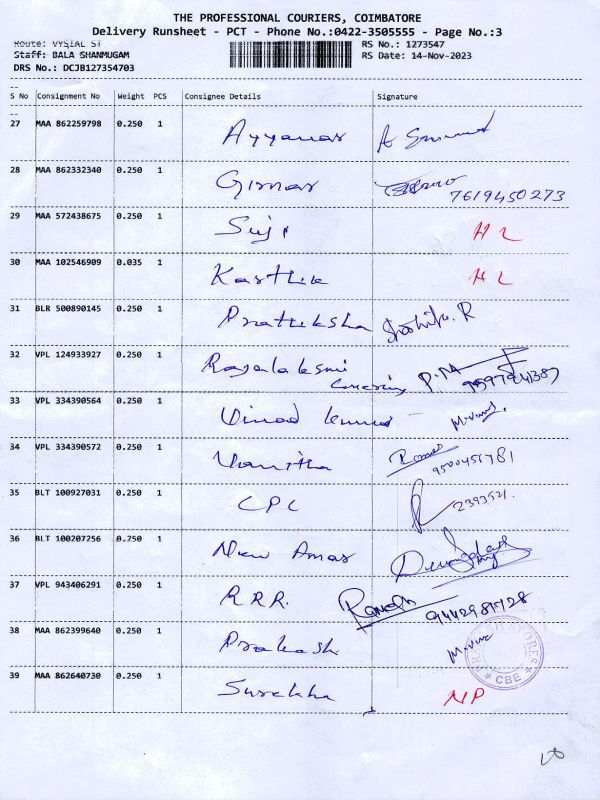 THE PROFESSIONAL COURIERS, COIMBATORE
Delivery Runsheet - PCT - Phone No.:0422-3505555 - Page No.:3
Route: VYSIAL ST
RS No.: 1273547
Staff: BALA SHANMUGAM
RS Date: 14-Nov-2023
DRS No.: DCJB127354703
--
S No Consignment No Weight PCS Consignee Details Signature
--
27 MAA 862259798 0.250 1 Ayyanar
28 MAA 862332340 0.250 1 Girnar 7619450273
29 MAA 572438675 0.250 1 Suji H L
30 MAA 102546909 0.035 1 Karthik H L
31 BLR 500890145 0.250 1 Prathiksha
32 VPL 124933927 0.250 1 Rajalaksmi
33 VPL 334390564 0.250 1 Vinod kumar
34 VPL 334390572 0.250 1 Vanitha 9500451781
35 BLT 100927031 0.250 1 CPC 2393521.
36 BLT 100207256 0.250 1 New Amar
37 VPL 943406291 0.250 1 R.R.R. Ramesh 9442981728
38 MAA 862399640 0.250 1 Prakash
CBE
39 MAA 862640730 0.250 1 Surekha NP